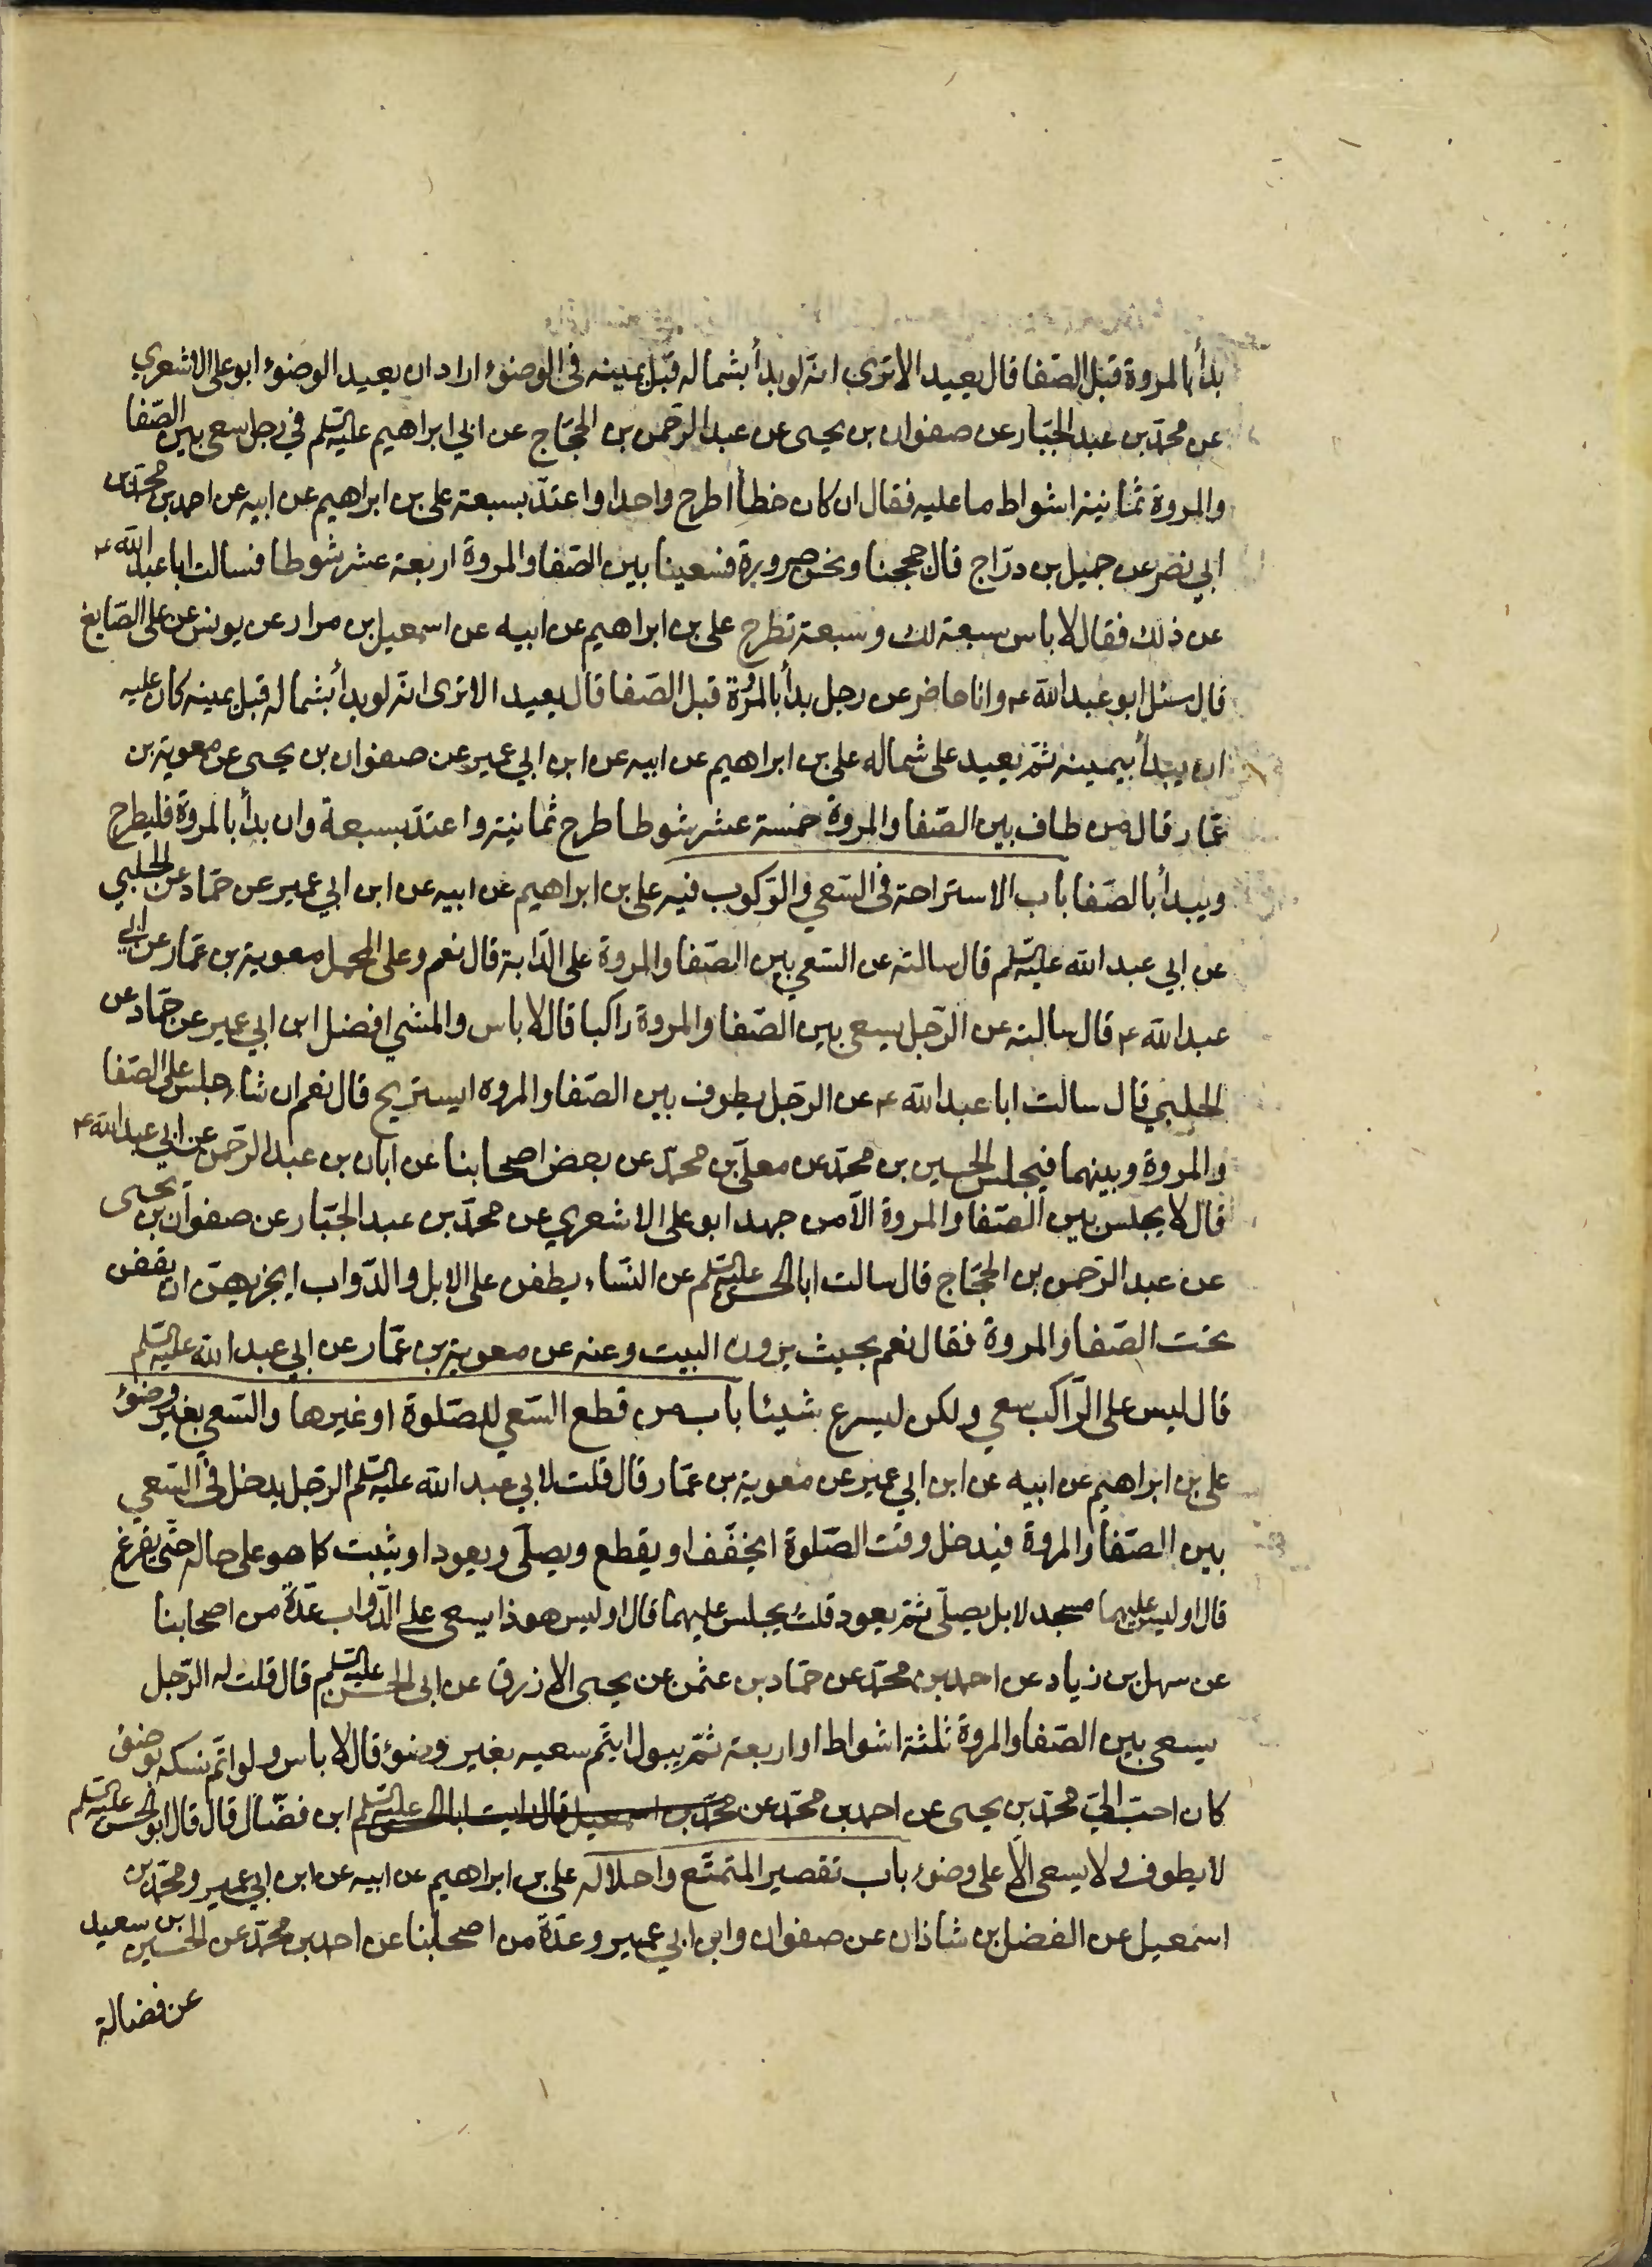 بدأ بالمروة قبل الصّفا قال يعيد الاترى انه لو بدأ بشماله قبل يمينه فى الوضوء اراد ان يعيد الوضوء ابو على الاشعري
عن محمّد بن عبد الجبّار عن صفوان بن يحيى عن عبد الرّحمن بن الحجّاج عن ابي ابراهيم عليه السّلم في رجل سعى بين الصّفا
والمروة ثمانية اشواط ما عليه فقال ان كان خطأ اطرح واحدا واعتدّ بسبعة على بن ابراهيم عن ابيه عن احمد بن محمّد بن
ابي نصر عن جميل بن درّاج قال حججنا ونحن صرورة فسعينا بين الصّفا والمروة اربعة عشر شوطا فسالت ابا عبد الله ع
عن ذلك فقال لا باس سبعة لك وسبعة تطرح على بن ابراهيم عن ابيه عن اسمعيل بن مرار عن يونس عن على الصّايغ
قال سئل ابو عبد الله ع وانا حاضر عن رجل بدأ بالمروة قبل الصّفا قال يعيد الاترى انه لو بدأ بشماله قبل يمينه كان عليه
ان يبدأ بيمينه ثمّ يعيد على شماله على بن ابراهيم عن ابيه عن ابن ابي عمير عن صفوان بن يحيى عن معوية بن
عمّار قال من طاف بين الصّفا والمروة خمسة عشر شوطا طرح ثمانية واعتدّ بسبعة وان بدأ بالمروة فليطرح
ويبدأ بالصّفا باب الاستراحة فى السّعي والرّكوب فيه على بن ابراهيم عن ابيه عن ابن ابي عمير عن حمّاد عن الحلبي
عن ابي عبد الله عليه السّلم قال سالته عن السّعي بين الصّفا والمروة على الدّابة قال نعم وعلى المحمل معوية بن عمّار عن ابي
عبد الله ع قال سالته عن الرّجل يسعى بين الصّفا والمروة راكبا قال لا باس والمشي افضل ابن ابي عمير عن حمّاد عن
الحلبي قال سالت ابا عبد الله ع عن الرّجل يطوف بين الصّفا والمروه ايستريح قال نعم ان شاء جلس على الصّفا
والمروة وبينهما فيجلس الحسين بن محمّد عن معلّى بن محمّد عن بعض اصحابنا عن ابان بن عبد الرّحمن عن ابي عبد الله ع
قال لا يجلس بين الصّفا والمروة الّا من جهد ابو على الاشعري عن محمّد بن عبد الجبّار عن صفوان بن يحيى
عن عبد الرّحمن بن الحجّاج قال سالت ابا الحسن عليه السّلم عن النّساء يطفن على الابل والدّواب ايجزيهنّ ان يقفن
تحت الصّفا والمروة فقال نعم بحيث يرون البيت وعنه عن معوية بن عمّار عن ابي عبد الله عليه السّلم
قال ليس على الرّاكب سعي ولكن ليسرع شيئا باب من قطع السّعي للصّلوة او غيرها والسّعي بغير وضوء
على بن ابراهيم عن ابيه عن ابن ابي عمير عن معوية بن عمّار قال قلت لابي عبد الله عليه السّلم الرّجل يدخل فى السّعي
بين الصّفا والمروة فيدخل وقت الصّلوة ايخفّف او يقطع ويصلّى ويعود او يثبت كما هو على حاله حتّى يفرغ
قال او ليس عليهما مسجد لا بل يصلّى ثمّ يعود قلت يجلس عليهما قال او ليس هو ذا يسعى على الدّواب عدّة من اصحابنا
عن سهل بن زياد عن احمد بن محمّد عن حمّاد بن عثمن عن يحيى الازرق عن ابى الحسن عليه السّلم قال قلت له الرّجل
يسعى بين الصّفا والمروة ثلثة اشواط او اربعة ثمّ يبول ايتم سعيه بغير وضوء قال لا باس ولو اتمّ نسكه بوضوء
كان احبّ الىّ محمّد بن يحيى عن احمد بن محمّد عن محمّد بن اسمعيل قال رايت ابا الحسن عليه السّلم ابن فضّال قال قال ابو الحسن عليه السّلم
لا يطوف ولا يسعى الّا على وضوء باب تقصير المتمتّع واحلاله على بن ابراهيم عن ابيه عن ابن ابي عمير ومحمّد بن
اسمعيل عن الفضل بن شاذان عن صفوان وابن ابي عمير وعدّة من اصحابنا عن احمد بن محمّد عن الحسين بن سعيد
عن فضالة